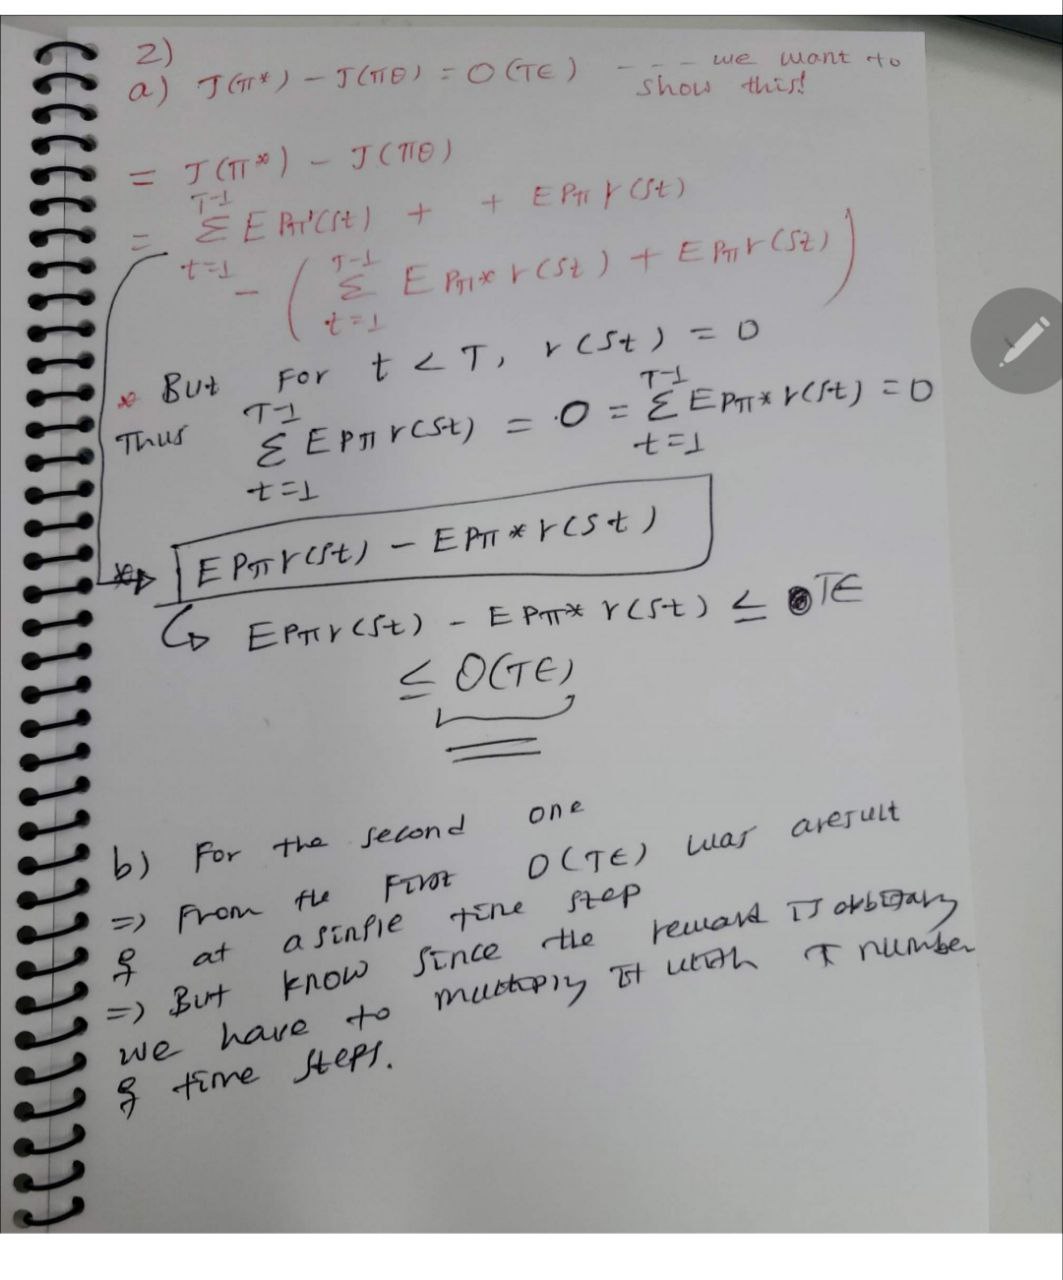 2)
a) J(π*) - J(πθ) = O(TE) - - - we want to
show this!
= J(π*) - J(πθ)
T-1
= Σ E Pπ'(St) + + E Pπ r(St)
t=1
T-1
- ( Σ E Pπ* r(St) + E Pπ r(St) )
t=1
* But For t < T, r(St) = 0
T-1 T-1
Thus Σ E Pπ r(St) = 0 = Σ E Pπ* r(St) = 0
t=1 t=1
E Pπ r(St) - E Pπ* r(St)
↳ E Pπ r(St) - E Pπ* r(St) ≤ TE
≤ O(TE)
b) For the second one
=> From the First O(TE) was aresult
of at a single time step
=> But know since the reward is arbitrary
we have to multiply it with T number
of time steps.